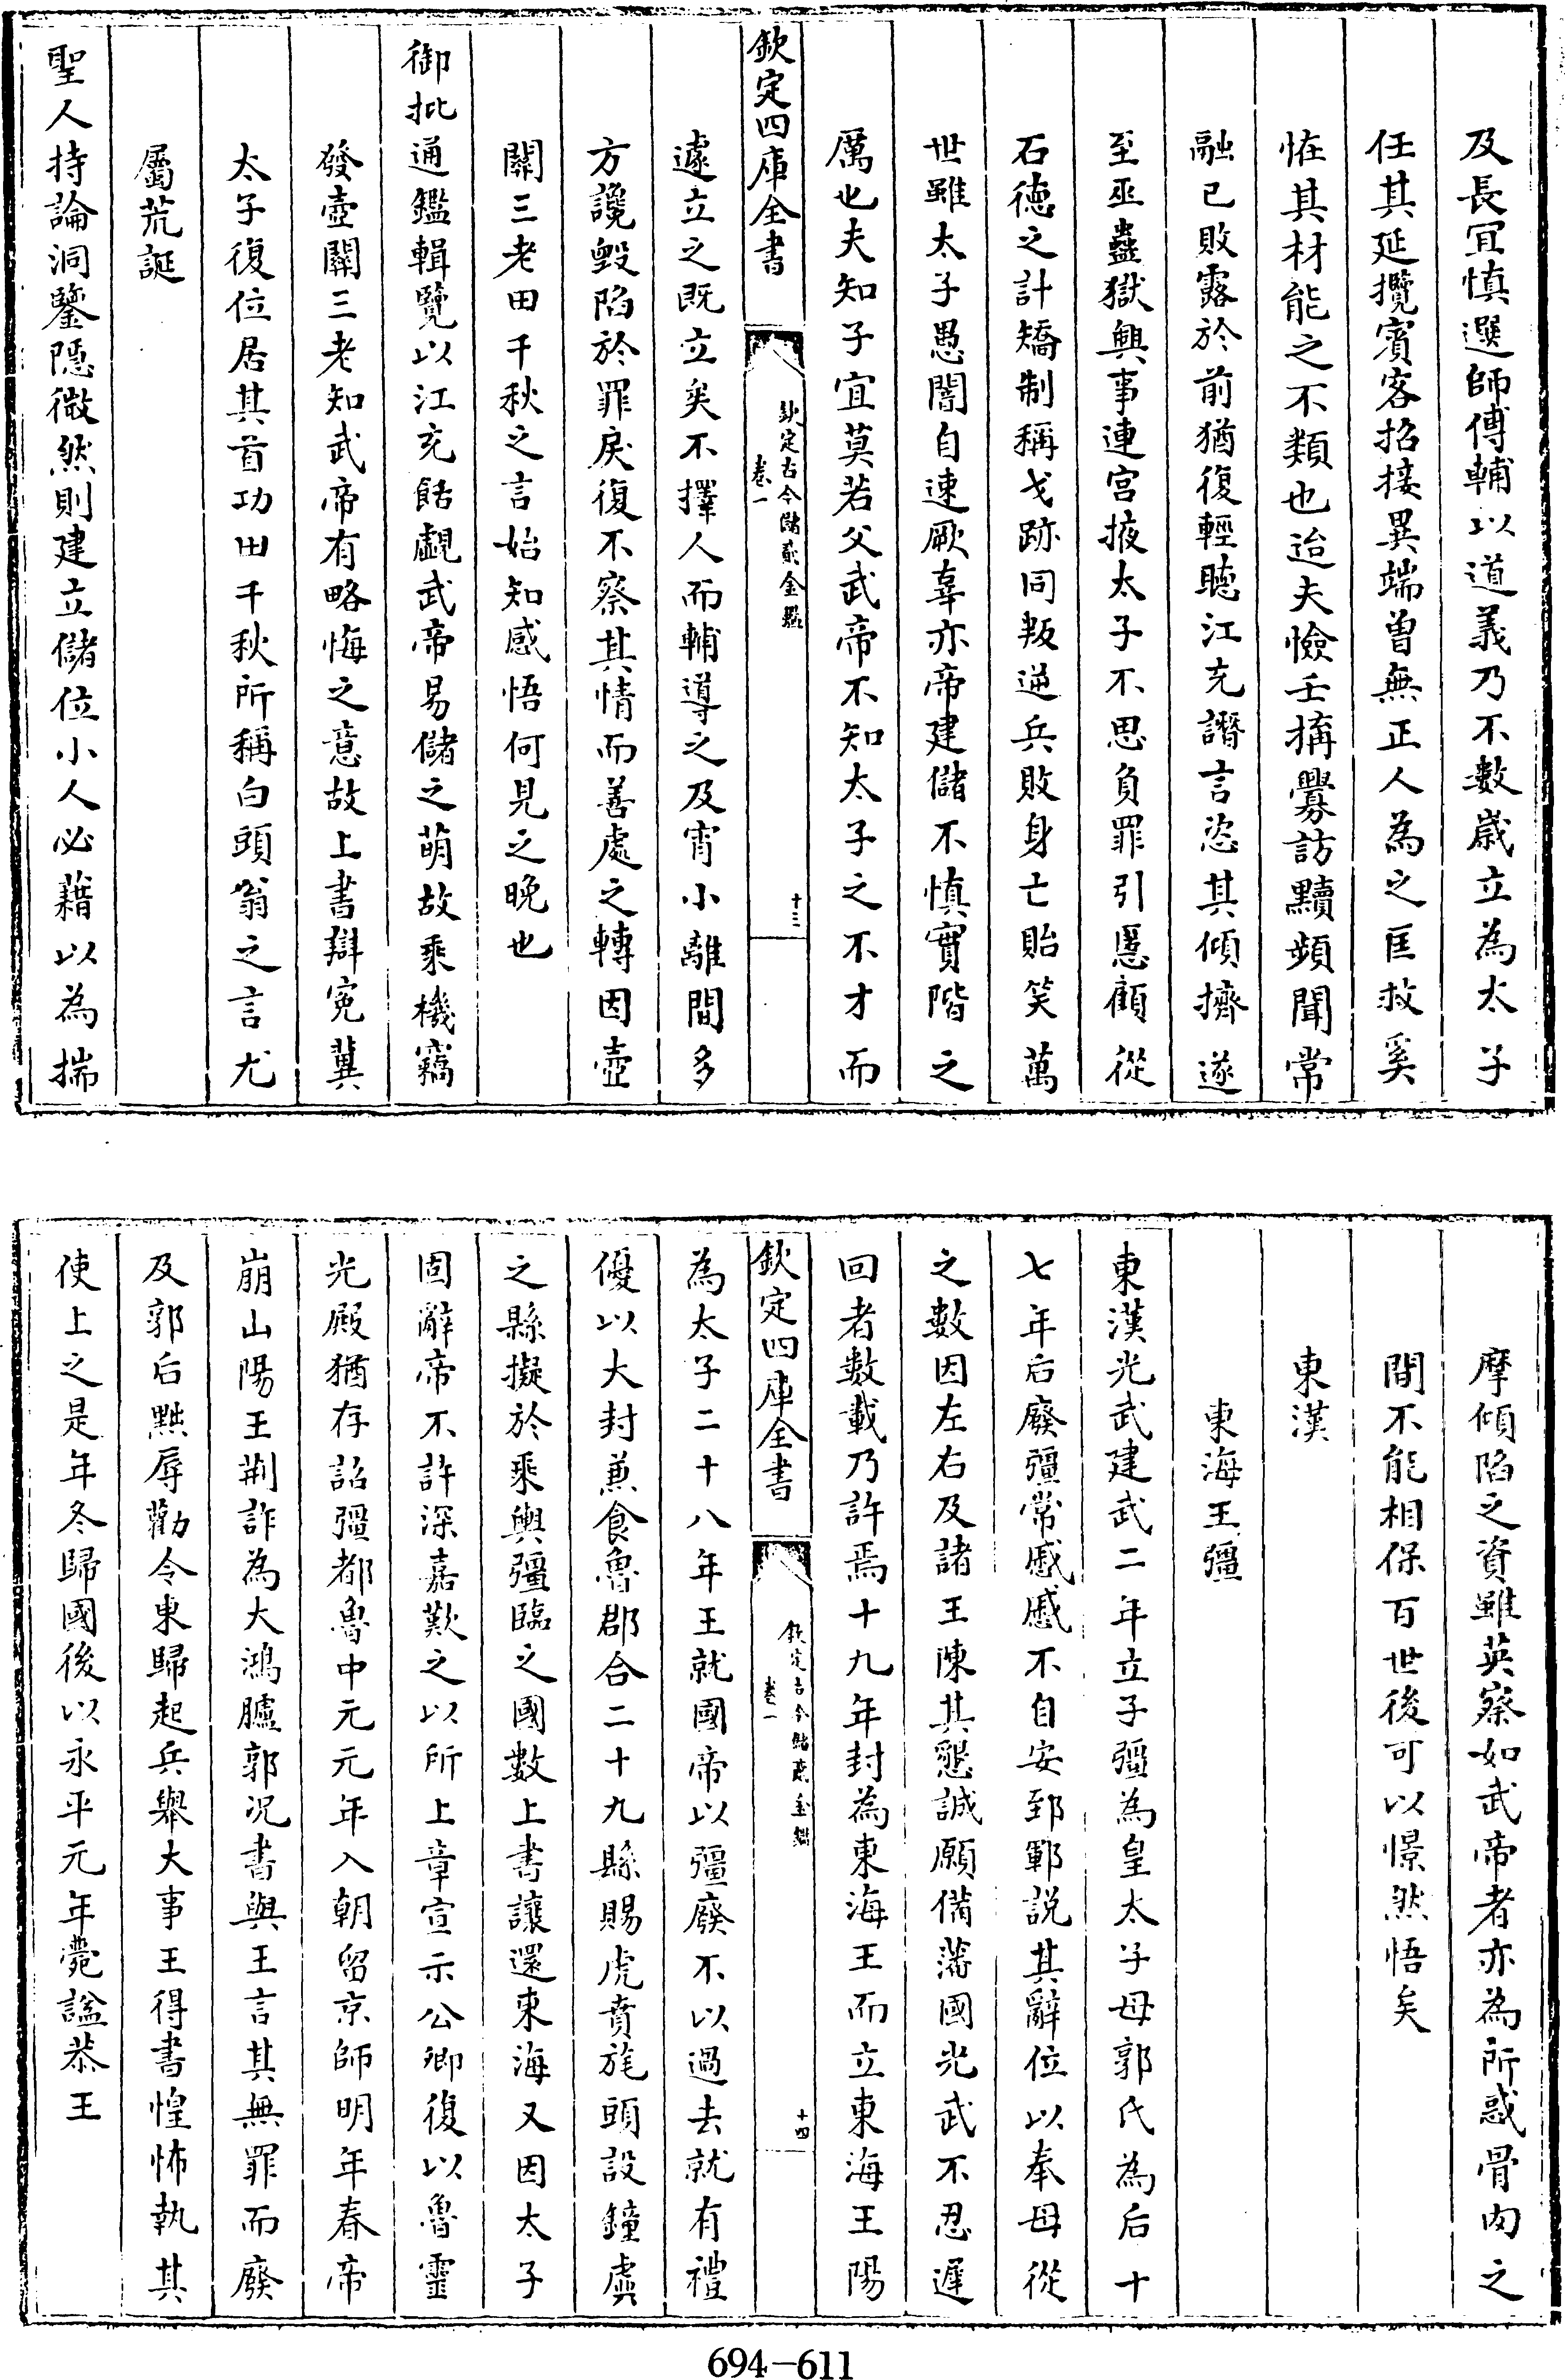 及長宜慎選師傅輔以道義乃不數歳立為太子
任其延攬賓客招接異端曽無正人為之匡救奚
恠其材能之不類也迨夫憸壬搆釁訪黷頻聞常
融已敗露於前猶復輕聴江充譖言恣其傾擠遂
至巫蠱獄興事連宫掖太子不思負罪引慝顧從
石徳之計矯制稱戈跡同叛逆兵敗身亡貽笑萬
世雖太子愚闇自速厥辜亦帝建儲不慎實階之
厲也夫知子宜莫若父武帝不知太子之不才而
欽定四庫全書
欽定古今儲貳金鑑
卷一
十三
遽立之既立矣不擇人而輔導之及宵小離間多
方讒毁陷於罪戾復不察其情而善處之轉因壺
關三老田千秋之言始知感悟何見之晚也
御批通鑑輯覽以江充餂覷武帝易儲之萌故乘機竊
發壺關三老知武帝有略悔之意故上書辯寃冀
太子復位居其首功田千秋所稱白頭翁之言尤
屬荒誕
聖人持論洞鑒隠微然則建立儲位小人必藉以為揣
摩傾陷之資雖英察如武帝者亦為所惑骨肉之
間不能相保百世後可以憬然悟矣
東漢
東海王彊
東漢光武建武二年立子彊為皇太子母郭氏為后十
七年后廢彊常慼慼不自安郅鄆説其辭位以奉母從
之數因左右及諸王陳其懇誠願備藩國光武不忍遲
回者數載乃許焉十九年封為東海王而立東海王陽
欽定四庫全書
欽定古今儲貳金鑑
卷一
十四
為太子二十八年王就國帝以彊廢不以過去就有禮
優以大封兼食魯郡合二十九縣賜虎賁旄頭設鐘虡
之縣擬於乘輿彊臨之國數上書讓還東海又因太子
固辭帝不許深嘉歎之以所上章宣示公卿復以魯靈
光殿猶存詔彊都魯中元元年入朝留京師明年春帝
崩山陽王荆詐為大鴻臚郭况書與王言其無罪而廢
及郭后黜辱勸令東歸起兵舉大事王得書惶怖執其
使上之是年冬歸國後以永平元年薨諡恭王
694-611